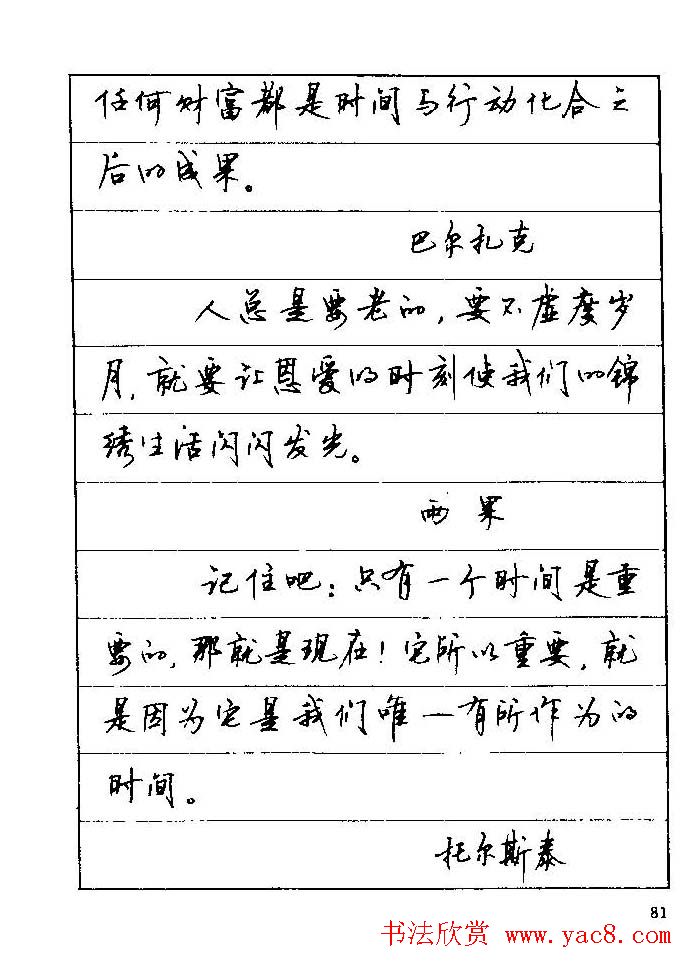 任何财富都是时间与行动化合之
后的成果。
巴尔扎克
人总是要老的，要不虚度岁
月，就要让恩爱的时刻使我们的锦
绣生活闪闪发光。
雨果
记住吧：只有一个时间是重
要的，那就是现在！它所以重要，就
是因为它是我们唯一有所作为的
时间。
托尔斯泰
81
书法欣赏 www.yac8.com